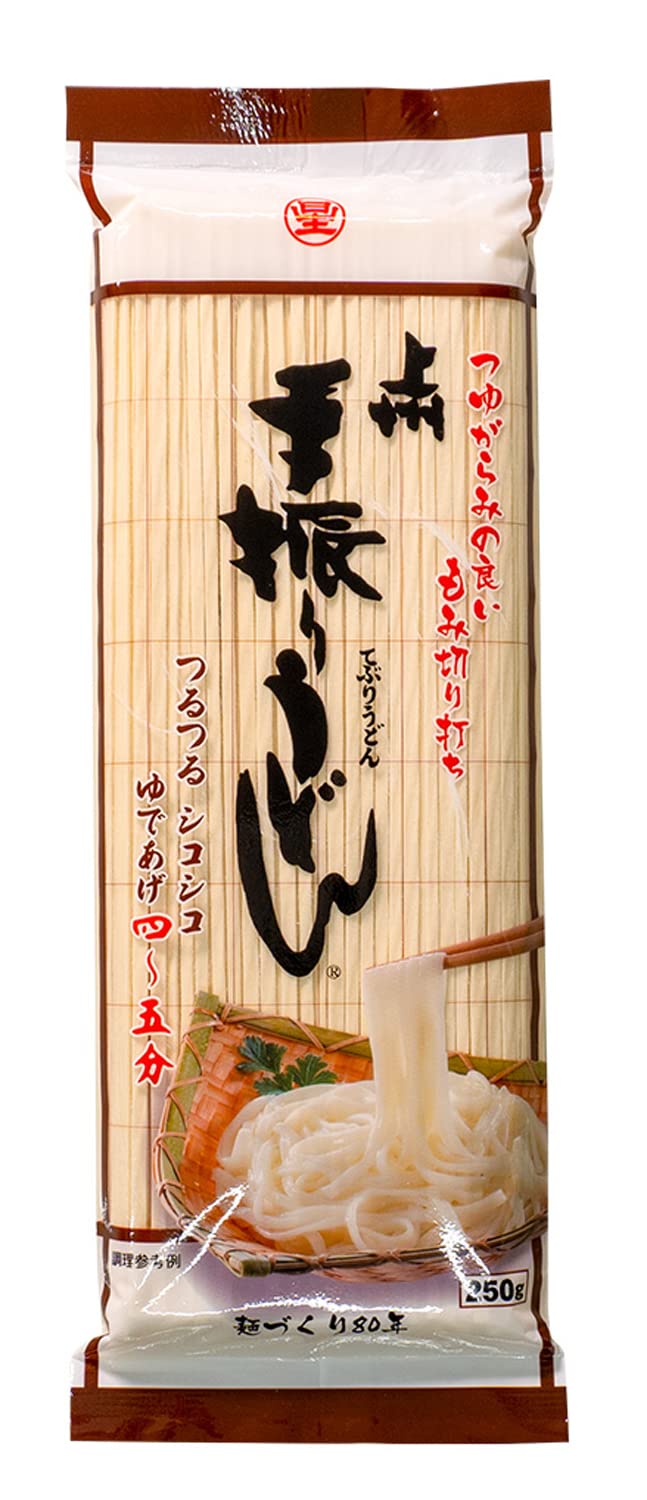 星
つゆがらみの良い
もみ切り打ち
上州
手振りうどん
®
てぶりうどん
つるつる シコシコ
ゆであげ四〜五分
調理参考例
250g
麺づくり80年